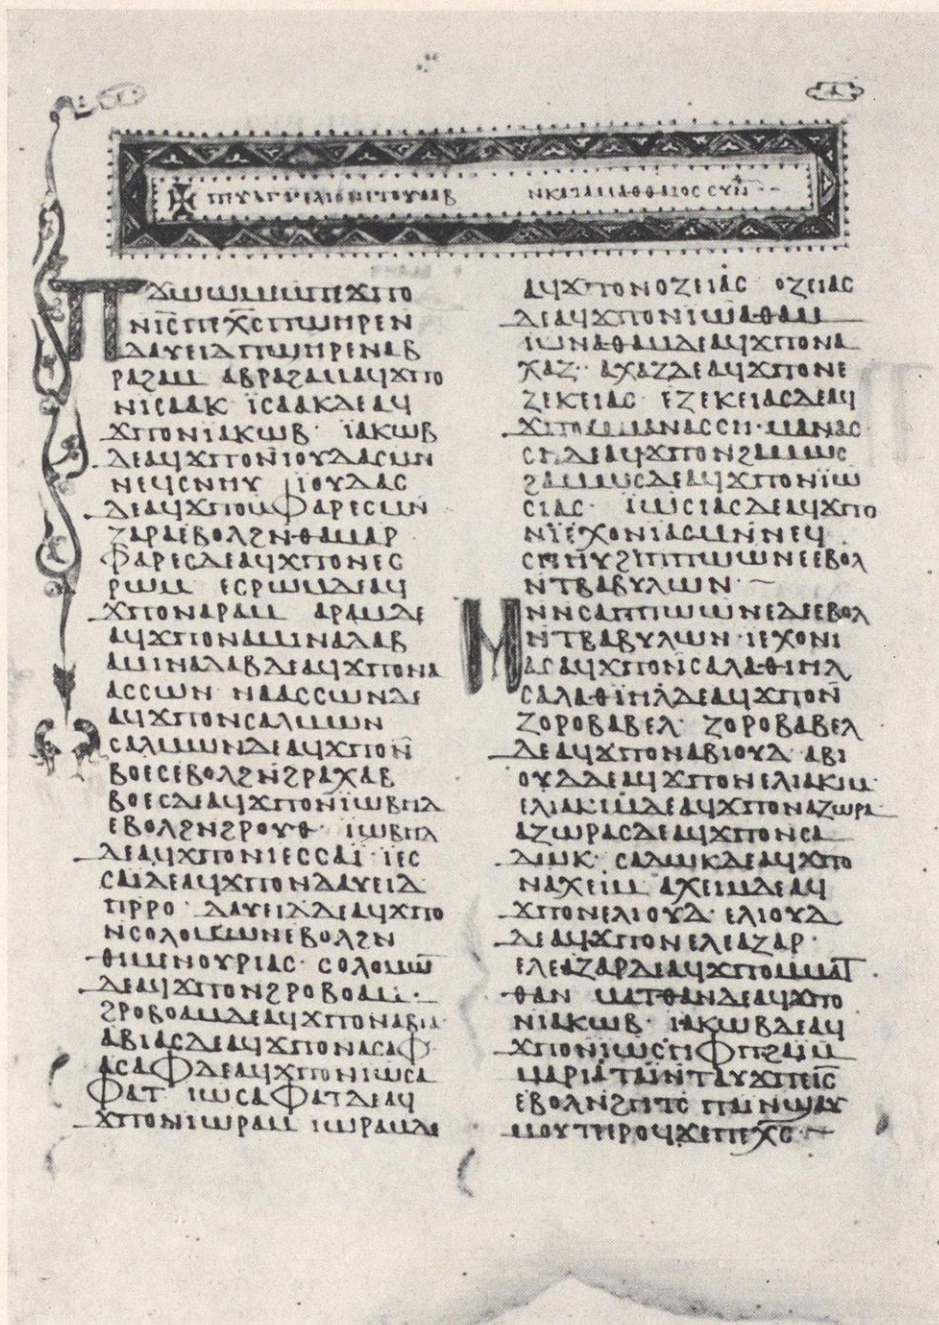 ⲡⲉⲩⲁⲅⲅⲉⲗⲓⲟⲛⲉⲧⲟⲩⲁⲁⲃ ⲛⲕⲁⲧⲁⲙⲁⲑⲑⲁⲓⲟⲥ ⲥⲩⲛ
ⲡϫⲱⲱⲙⲉⲙⲡⲉϫⲡⲟ
ⲛⲓ̅ⲥ̅ⲡⲉⲭ̅ⲥ̅ⲡϣⲏⲣⲉⲛ
ⲇⲁⲩⲉⲓⲇⲡϣⲏⲣⲉⲛⲁⲃ
ⲣⲁϩⲁⲙ ⲁⲃⲣⲁϩⲁⲙⲁϥϫⲡⲟ
ⲛⲓⲥⲁⲁⲕ ⲓ̈ⲥⲁⲁⲕⲇⲉⲁϥ
ϫⲡⲟⲛⲓⲁⲕⲱⲃ· ⲓ̈ⲁⲕⲱⲃ
ⲇⲉⲁϥϫⲡⲟⲛⲓ̈ⲟⲩⲇⲁⲥⲙⲛ
ⲛⲉϥⲥⲛⲏⲩ ⲓ̈ⲟⲩⲇⲁⲥ
ⲇⲉⲁϥϫⲡⲟⲙⲫⲁⲣⲉⲥⲙⲛ
ⲍⲁⲣⲁⲉⲃⲟⲗϩⲛⲑⲁⲙⲁⲣ
ⲫⲁⲣⲉⲥⲇⲉⲁϥϫⲡⲟⲛⲉⲥ
ⲣⲱⲙ ⲉⲥⲣⲱⲙⲇⲉⲁϥ
ϫⲡⲟⲛⲁⲣⲁⲙ ⲁⲣⲁⲙⲇⲉ
ⲁϥϫⲡⲟⲛⲁⲙⲓⲛⲁⲇⲁⲃ
ⲁⲙⲓⲛⲁⲇⲁⲃⲇⲉⲁϥϫⲡⲟⲛⲛⲁ
ⲁⲥⲥⲱⲛ ⲛⲁⲁⲥⲥⲱⲛⲇⲉ
ⲁϥϫⲡⲟⲛⲥⲁⲗⲙⲱⲛ
ⲥⲁⲗⲙⲱⲛⲇⲉⲁϥϫⲡⲟⲛ̅
ⲃⲟⲉⲥⲉⲃⲟⲗϩⲛϩⲣⲁⲭⲁⲃ
ⲃⲟⲉⲥⲇⲉⲁϥϫⲡⲟⲛⲓ̈ⲱⲃⲏⲇ
ⲉⲃⲟⲗϩⲛϩⲣⲟⲩⲑ· ⲓ̈ⲱⲃⲏⲇ
ⲇⲉⲁϥϫⲡⲟⲛⲓⲉⲥⲥⲁⲓ̈· ⲓⲉⲥ
ⲥⲁⲓ̈ⲇⲉⲁϥϫⲡⲟⲛⲇⲁⲩⲉⲓⲇ
ⲡⲣⲣⲟ· ⲇⲁⲩⲉⲓⲇⲇⲉⲁϥϫⲡⲟ
ⲛⲥⲟⲗⲟⲙⲱⲛⲉⲃⲟⲗϩⲛ
ⲑⲓⲙⲉⲛⲟⲩⲣⲓⲁⲥ· ⲥⲟⲗⲟⲙⲱ̅
ⲇⲉⲁϥϫⲡⲟⲛϩⲣⲟⲃⲟⲁⲙ·
ϩⲣⲟⲃⲟⲁⲙⲇⲉⲁϥϫⲡⲟⲛⲁⲃⲓⲁ
ⲁⲃⲓⲁⲥⲇⲉⲁϥϫⲡⲟⲛⲁⲥⲁⲫ·
ⲁⲥⲁⲫⲇⲉⲁϥϫⲡⲟⲛⲓⲱⲥⲁ
ⲫⲁⲧ ⲓⲱⲥⲁⲫⲁⲧⲇⲉⲁϥ
ϫⲡⲟⲛⲓⲱⲣⲁⲙ ⲓⲱⲣⲁⲙⲇⲉ
ⲁϥϫⲡⲟⲛⲟⲍⲉⲓⲁⲥ ⲟⲍⲉⲓⲁⲥ
ⲇⲉⲁϥϫⲡⲟⲛⲓⲱⲛⲁⲑⲁⲙ
ⲓⲱⲛⲁⲑⲁⲙⲇⲉⲁϥϫⲡⲟⲛⲁ
ⲭⲁⲍ· ⲁⲭⲁⲍⲇⲉⲁϥϫⲡⲟⲛⲉ
ⲍⲉⲕⲉⲓⲁⲥ ⲉⲍⲉⲕⲉⲓⲁⲥⲇⲉⲁϥ
ϫⲡⲟⲙⲙⲁⲛⲁⲥⲥⲏ· ⲙⲁⲛⲁⲥ
ⲥⲏⲇⲉⲁϥϫⲡⲟⲛϩⲁⲙⲙⲱⲥ
ϩⲁⲙⲙⲱⲥⲇⲉⲁϥϫⲡⲟⲛⲓ̈ⲱ
ⲥⲓⲁⲥ· ⲓ̈ⲱⲥⲓⲁⲥⲇⲉⲁϥϫⲡⲟ
ⲛⲓ̈ⲉⲭⲟⲛⲓⲁⲥⲙⲛⲛⲉϥ
ⲥⲛⲏⲩϩⲓⲡⲡⲱⲱⲛⲉⲉⲃⲟⲗ
ⲛⲧⲃⲁⲃⲩⲗⲱⲛ·
ⲙⲛⲛⲥⲁⲡⲡⲱⲱⲛⲉⲇⲉⲉⲃⲟⲗ
ⲛⲧⲃⲁⲃⲩⲗⲱⲛ· ⲓⲉⲭⲟⲛⲓ
ⲁⲥⲁϥϫⲡⲟⲛⲥⲁⲗⲁⲑⲓⲏⲗ
ⲥⲁⲗⲁⲑⲓⲏⲗⲇⲉⲁϥϫⲡⲟⲛ̅
ⲍⲟⲣⲟⲃⲁⲃⲉⲗ· ⲍⲟⲣⲟⲃⲁⲃⲉⲗ
ⲇⲉⲁϥϫⲡⲟⲛⲁⲃⲓⲟⲩⲇ· ⲁⲃⲓ
ⲟⲩⲇⲇⲉⲁϥϫⲡⲟⲛⲉⲗⲓⲁⲕⲓⲙ·
ⲉⲗⲓⲁⲕⲓⲙⲇⲉⲁϥϫⲡⲟⲛⲁⲍⲱⲣⲁ
ⲁⲍⲱⲣⲁⲥⲇⲉⲁϥϫⲡⲟⲛⲥⲁ
ⲇⲱⲕ· ⲥⲁⲇⲱⲕⲇⲉⲁϥϫⲡⲟ
ⲛⲁⲭⲉⲓⲙ ⲁⲭⲉⲓⲙⲇⲉⲁϥ
ϫⲡⲟⲛⲉⲗⲓⲟⲩⲇ· ⲉⲗⲓⲟⲩⲇ
ⲇⲉⲁϥϫⲡⲟⲛⲉⲗⲉⲁⲍⲁⲣ·
ⲉⲗⲉⲁⲍⲁⲣⲇⲉⲁϥϫⲡⲟⲙⲙⲁⲧ
ⲑⲁⲛ ⲙⲁⲧⲑⲁⲛⲇⲉⲁϥϫⲡⲟ
ⲛⲓⲁⲕⲱⲃ· ⲓⲁⲕⲱⲃⲇⲉⲁϥ
ϫⲡⲟⲛⲓⲱⲥⲏⲫⲡϩⲁⲓ̈ⲙ
ⲙⲁⲣⲓⲁⲧⲁⲓ̈ⲛⲧⲁⲩϫⲡⲉⲓ̅ⲥ̅
ⲉⲃⲟⲗⲛϩⲏⲧⲥ ⲡⲁⲓ̈ⲛϣⲁⲩ
ⲙⲟⲩⲧⲉⲉⲣⲟϥϫⲉⲡⲉⲭ̅ⲥ̅·